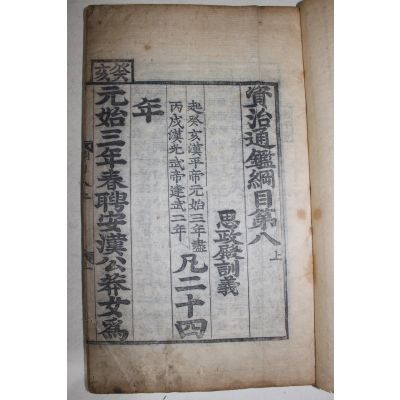 資治通鑑綱目第八上
思政殿訓義
起癸亥漢平帝元始三年盡
丙戌漢光武帝建武二年
凡二十四
年
癸亥
元始三年春聘安漢公莽女爲